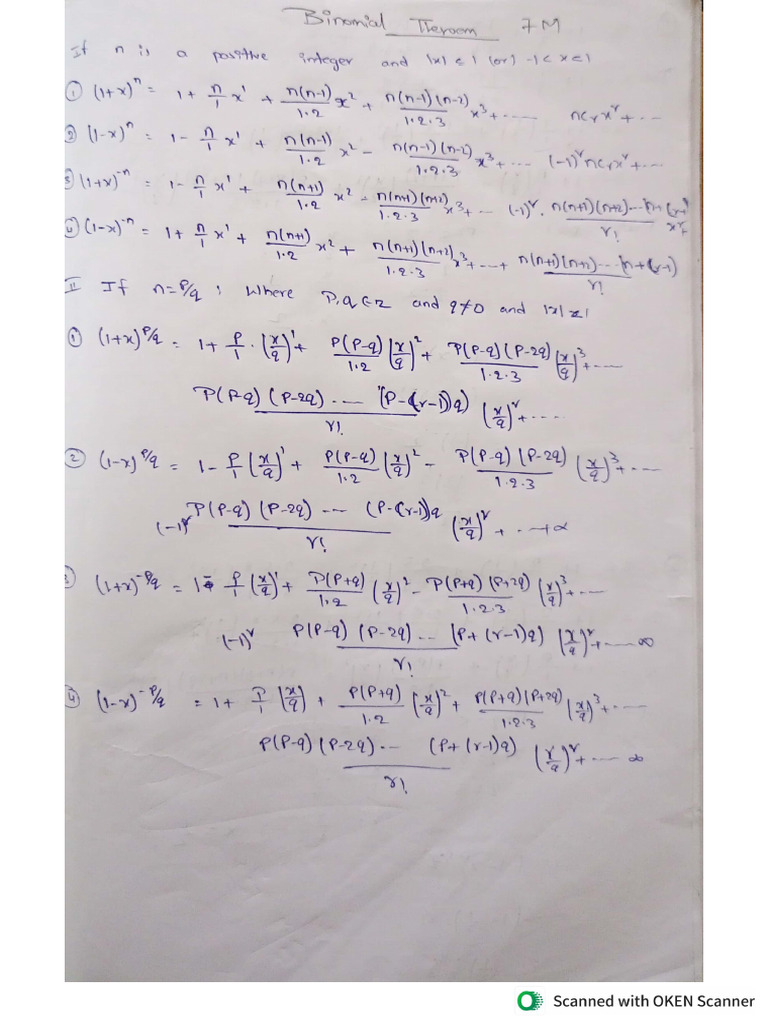 Binomial Theroem 7M
If n is a positive integer and |x| < 1 (or) -1 < x < 1
① (1+x)^n = 1 + n/1 x^1 + n(n-1)/1.2 x^2 + n(n-1)(n-2)/1.2.3 x^3 + ..... nCr x^r + ...
② (1-x)^n = 1 - n/1 x^1 + n(n-1)/1.2 x^2 - n(n-1)(n-2)/1.2.3 x^3 + ... (-1)^r nCr x^r + ...
③ (1+x)^-n = 1 - n/1 x^1 + n(n+1)/1.2 x^2 - n(n+1)(n+2)/1.2.3 x^3 + ... (-1)^r . n(n+1)(n+2)...(n+(r-1)/r! x^r+
④ (1-x)^-n = 1 + n/1 x^1 + n(n+1)/1.2 x^2 + n(n+1)(n+2)/1.2.3 x^3 + ... + n(n+1)(n+2)... (n+(r-1)/r!
II If n = P/q ; Where P, q ∈ z and q ≠ 0 and |x| < 1
① (1+x)^P/q = 1 + P/1 . (x/q)^1 + P(P-q)/1.2 (x/q)^2 + P(P-q)(P-2q)/1.2.3 (x/q)^3 + .....
P(P-q)(P-2q) .... (P-(r-1)q)/r! (x/q)^r + .....
② (1-x)^P/q = 1 - P/1 (x/q)^1 + P(P-q)/1.2 (x/q)^2 - P(P-q)(P-2q)/1.2.3 (x/q)^3 + ....
(-1)^r P(P-q)(P-2q) .... (P-(r-1)q/r! (x/q)^r + ... + ∝
③ (1+x)^-P/q = 1 - P/1 (x/q)^1 + P(P+q)/1.2 (x/q)^2 - P(P+q)(P+2q)/1.2.3 (x/q)^3 + ....
(-1)^r P(P-q)(P-2q)... (P+(r-1)q)/r! (x/q)^r + ..... ∞
④ (1-x)^-P/q = 1 + P/1 (x/q) + P(P+q)/1.2 (x/q)^2 + P(P+q)(P+2q)/1.2.3 (x/q)^3 + ....
P(P-q)(P-2q).... (P+(r-1)q)/r! (x/q)^r + ..... ∞
Scanned with OKEN Scanner